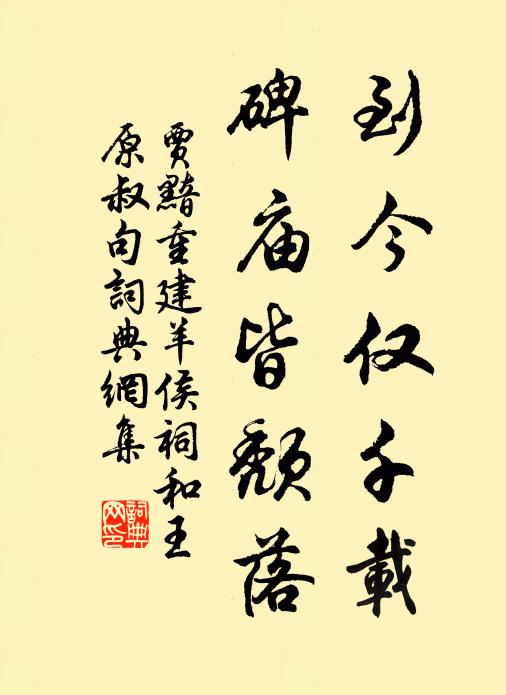 到今仅千載
碑庙皆頹落
賈黯重建羊侯祠和王
原叔句詞典網集
詞典
网印